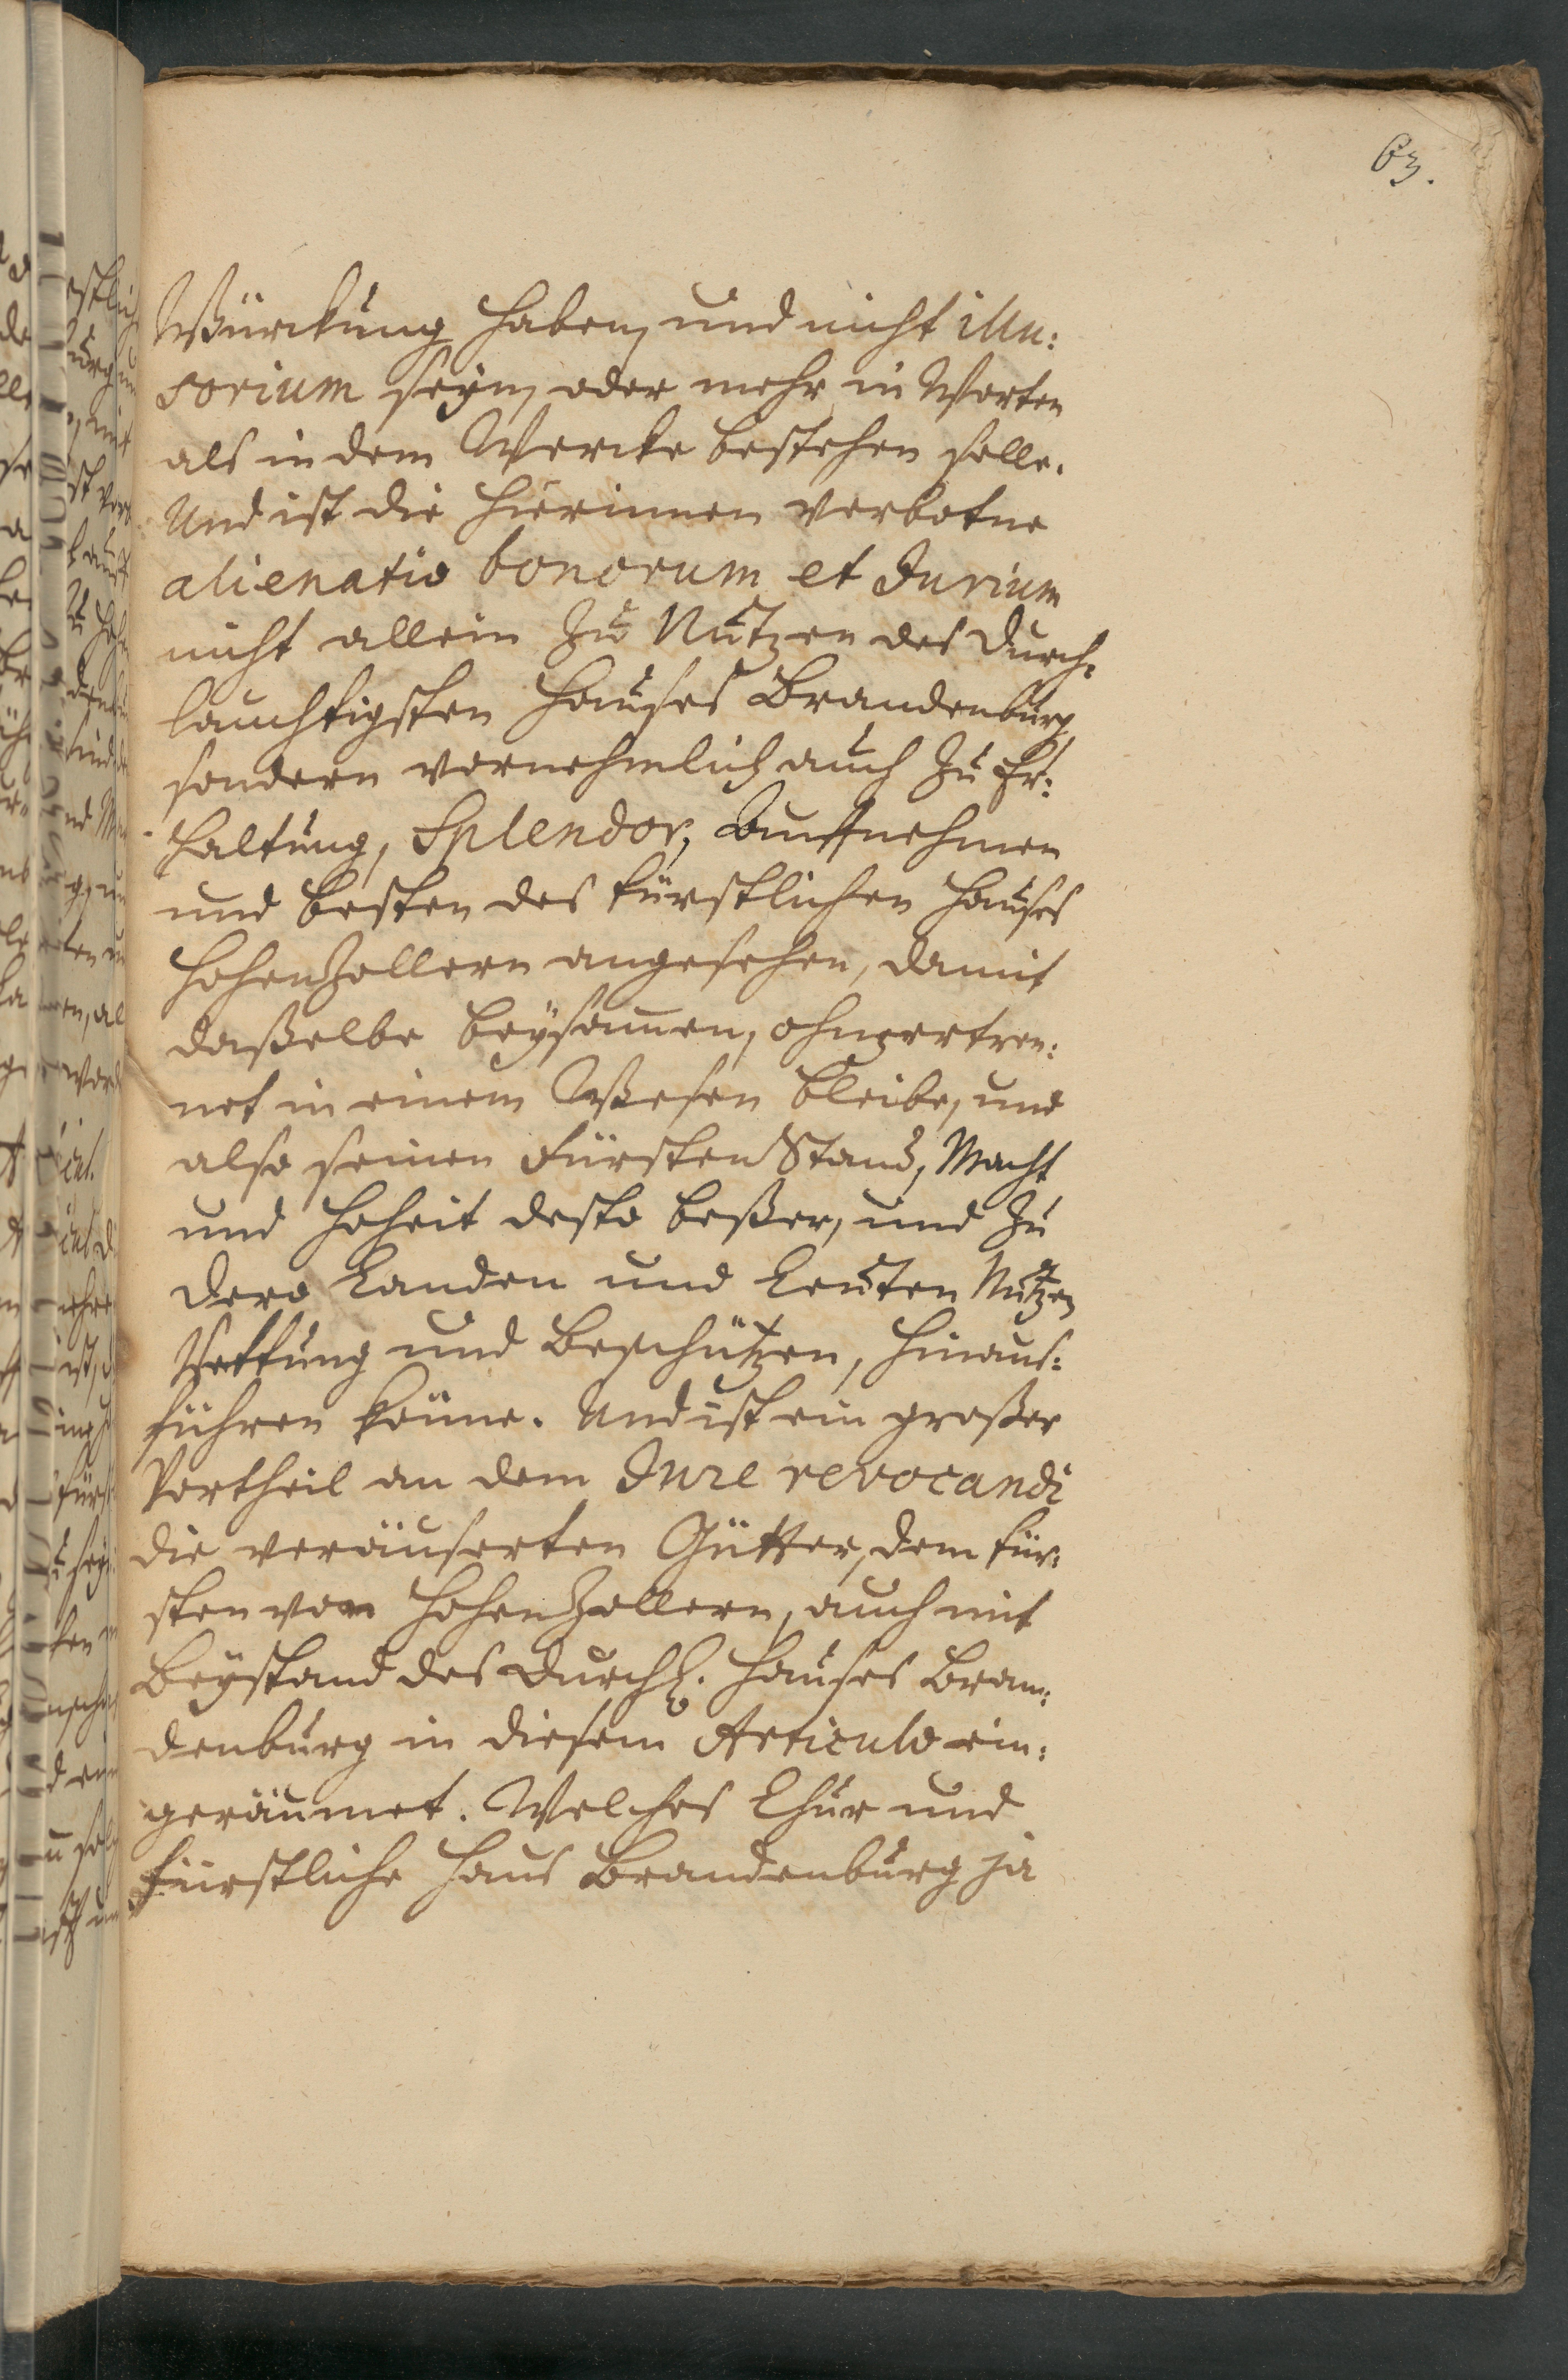 63.
Würckung haben, und nicht illu:
sorium seyn, oder mehr in Worten
als in dem Wercke bestehen solle.
Und ist die hierinnen verbotne
alienatio bonorum et Jurium
nicht allein zu Nutzen des Durch:
lauchtigsten Hauses Brandenburg
sondern vornehmlich auch zu Er:
haltung, Splendor, Auffnehmen
und besten des fürstlichen Hauses
HohenZollern angesehen, damit
daßelbe beysam̄en, ohnzertren:
net in einem Wesen bleibe, und
also seinen FürstenStand, Macht
und Hoheit desto beßer, und zu
dero Landen und Leuten Nutzen
Rettung und Beschützen, hinaus:
führen kön̄e. Und ist ein großer
Vortheil an dem Jure revocandi
die veräuserten Gütter, dem Für:
sten von HohenZollern, auch mit
Beystand des Durchl. Hauses Bran:
denburg in diesem Articulo ein:
geräumet. Welches Chur und
Fürstliche Haus Brandenburg ja